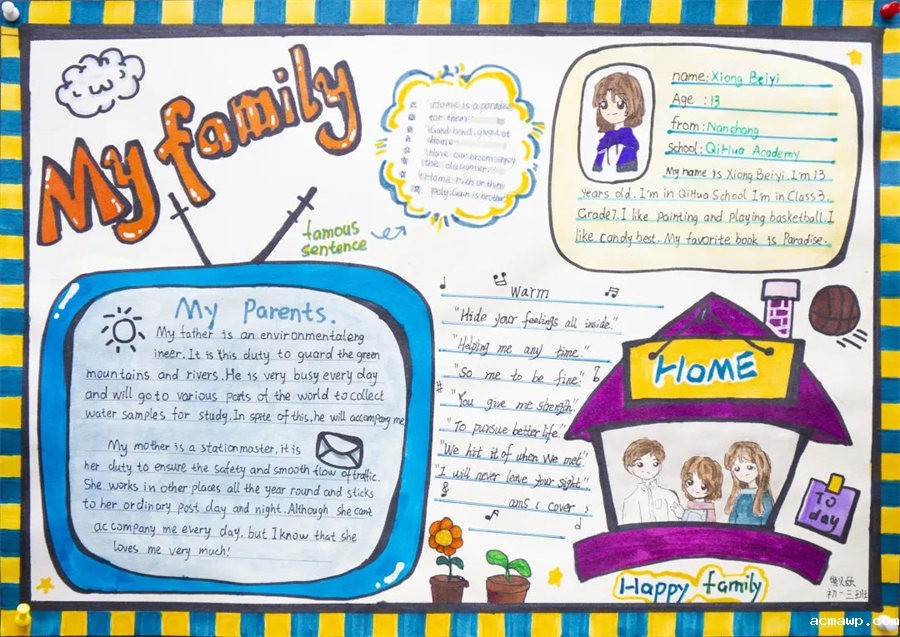 My family
Home is a paradise
for them
Good bend, good at
home
Have our broom, enjoy
the daughter.
Home rich or then
name: Xiong Beiyi
Age : 13
from: Nanchang
school: QiHua Academy
My name is Xiong Beiyi. I'm 13
years old. I'm in QiHua School I'm in Class3,
Grade7. I like painting and playing basketball. I
like candy best. My favorite book is Paradise.
famous
sentence
My Parents.
My father is an environmentaleng
ineer. It is this duty to guard the green
mountains and rivers. He is very busy every day
and will go to various parts of the world to collect
water samples for study. In spite of this, he will accompany me
My mother is a stationmaster, it is
her duty to ensure the safety and smooth flow of traffic.
She works in other places all the year round and sticks
to her ordinary post day and night. Although she cant
accompany me every day, but I know that she
loves me very much!
Warm
"Hide your feelings all inside."
"Helping me any time."
"So me to be fine."
"You give me strength".
"To pursue better life."
"We hit it of when we met."
"I will never leave your sight"
ams ( cover )
HOME
To
day
Happy family
初一三班
acmawp.com